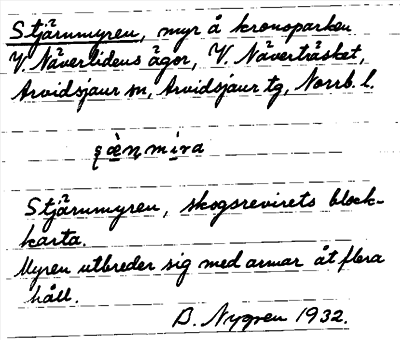 Stjärnmyren, myr å kronoparken
V. Näverlidens ägor, V. Näverträsket,
Arvidsjaur sn, Arvidsjaur tg, Norrb. l.
Stjärnmyren, skogsrevirets block-
karta.
Myren utbreder sig med armar åt flera
håll.
B. Nygren 1932.